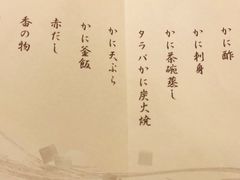 かに酢
かに刺身
かに茶碗蒸し
タラバかに炭火焼
かに天ぷら
かに釜飯
赤だし
香の物